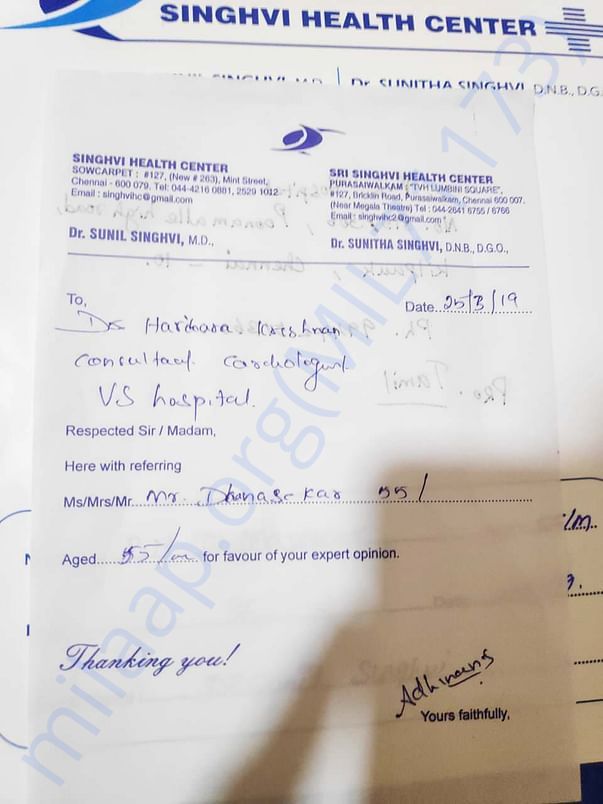 SINGHVI HEALTH CENTER
Dr. SUNITHA SINGHVI D.N.B., D.G.
SINGHVI HEALTH CENTER
SOWCARPET : #127, (New # 263), Mint Street,
Chennai - 600 079, Tel: 044-4216 0881, 2529 1012
Email : singhvihc@gmail.com
Dr. SUNIL SINGHVI, M.D.,
SRI SINGHVI HEALTH CENTER
PURASAIWALKAM : "TVH LUMBINI SQUARE",
#127, Bricklin Road, Purasaiwalkam, Chennai 600 007.
(Near Megala Theatre) Tel : 044-2641 6755 / 6766
Email : singhvihc2@gmail.com
Dr. SUNITHA SINGHVI, D.N.B., D.G.O.,
To,
Date 25/3/19
Dr Harihara Krishnan
Consultant Cardiologist
VS hospital.
Respected Sir / Madam,
Here with referring
Ms/Mrs/Mr. Mr. Dhanasekar 55/
Aged 55/m for favour of your expert opinion.
Thanking you!
Yours faithfully,
milaap.org(MILA 173)